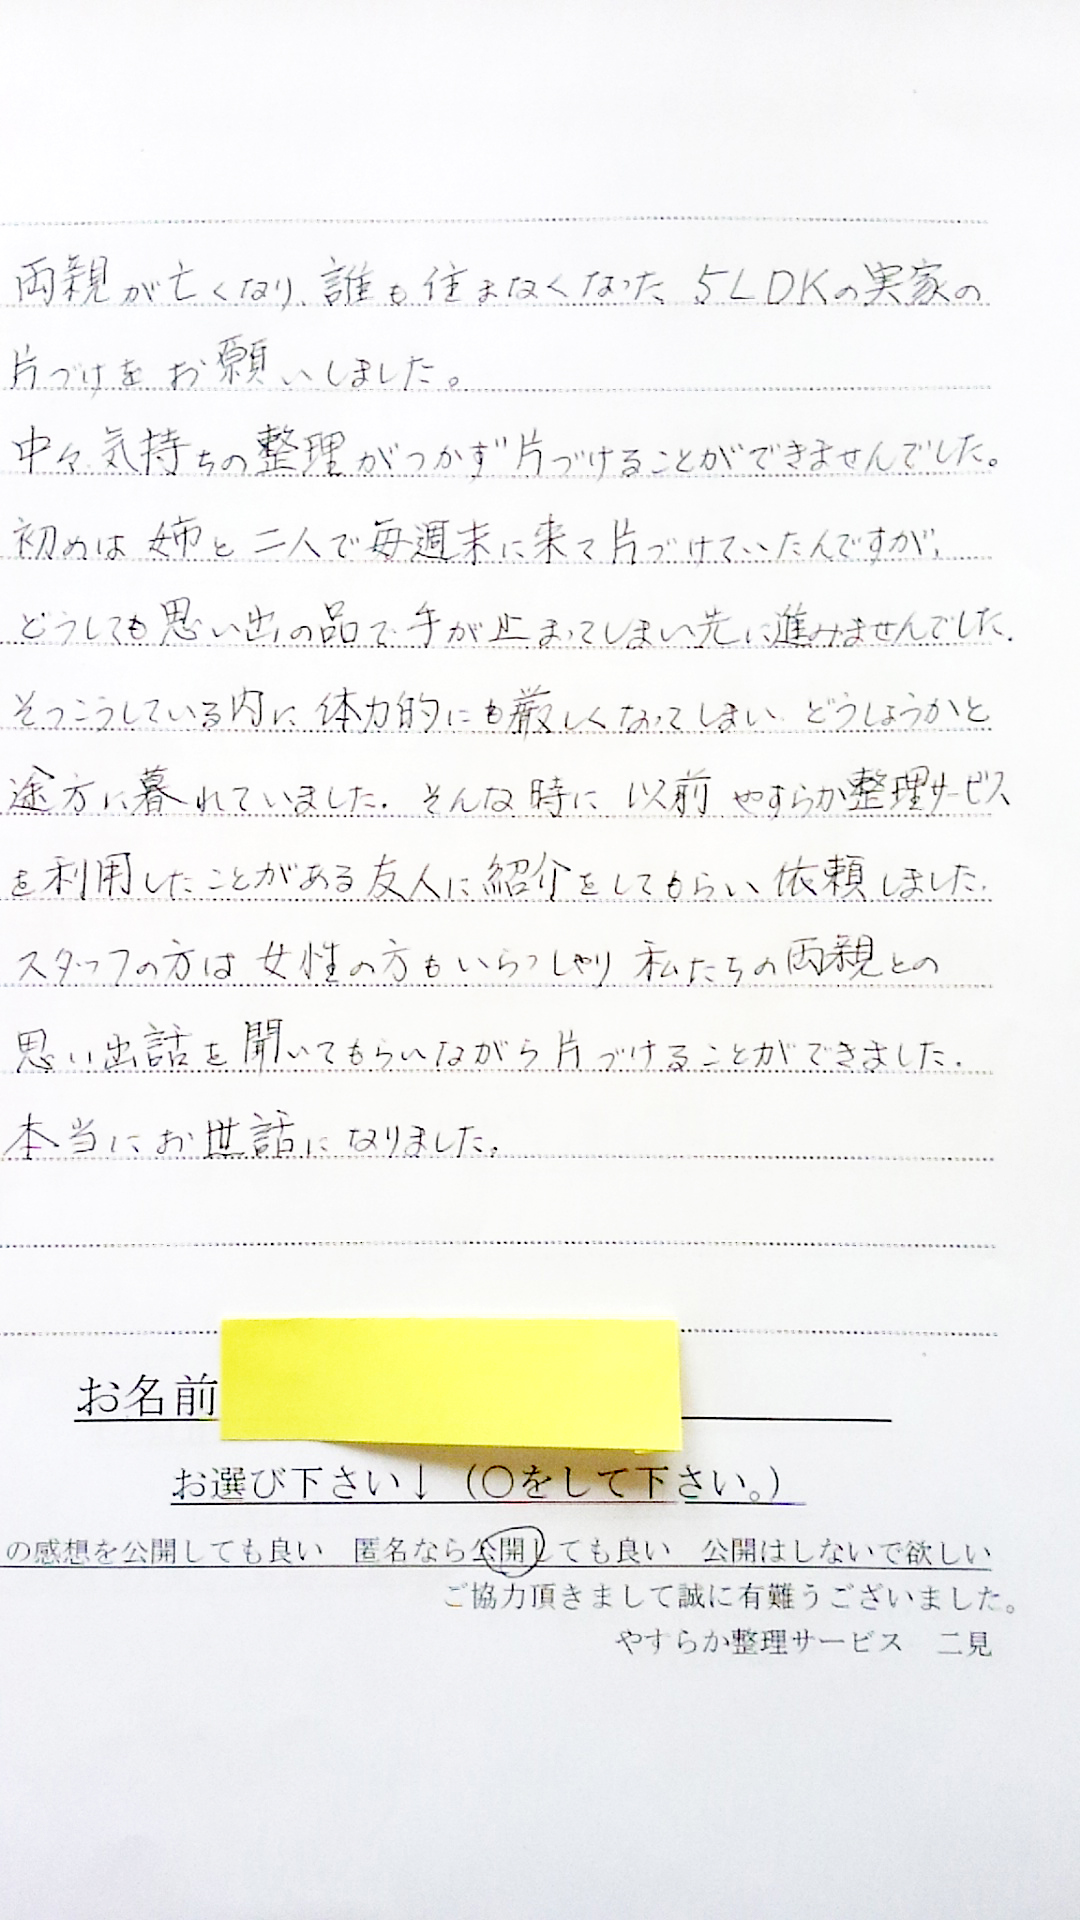 両親が亡くなり、誰も住まなくなった5LDKの実家の
片づけをお願いしました。
中々気持ちの整理がつかず片づけることができませんでした。
初めは姉と二人で毎週末に来て片づけていたんですが、
どうしても思い出の品で手が止まってしまい先に進みませんでした。
そうこうしている内に体力的にも厳しくなってしまい、どうしようかと
途方に暮れていました。そんな時に以前やすらか整理サービス
を利用したことがある友人に紹介をしてもらい依頼しました。
スタッフの方は女性の方もいらっしゃり私たちの両親との
思い出話を聞いてもらいながら片づけることができました。
本当にお世話になりました。
お名前
お選び下さい↓（〇をして下さい。）
の感想を公開しても良い　匿名なら公開しても良い　公開はしないで欲しい
ご協力頂きまして誠に有難うございました。
やすらか整理サービス　二見